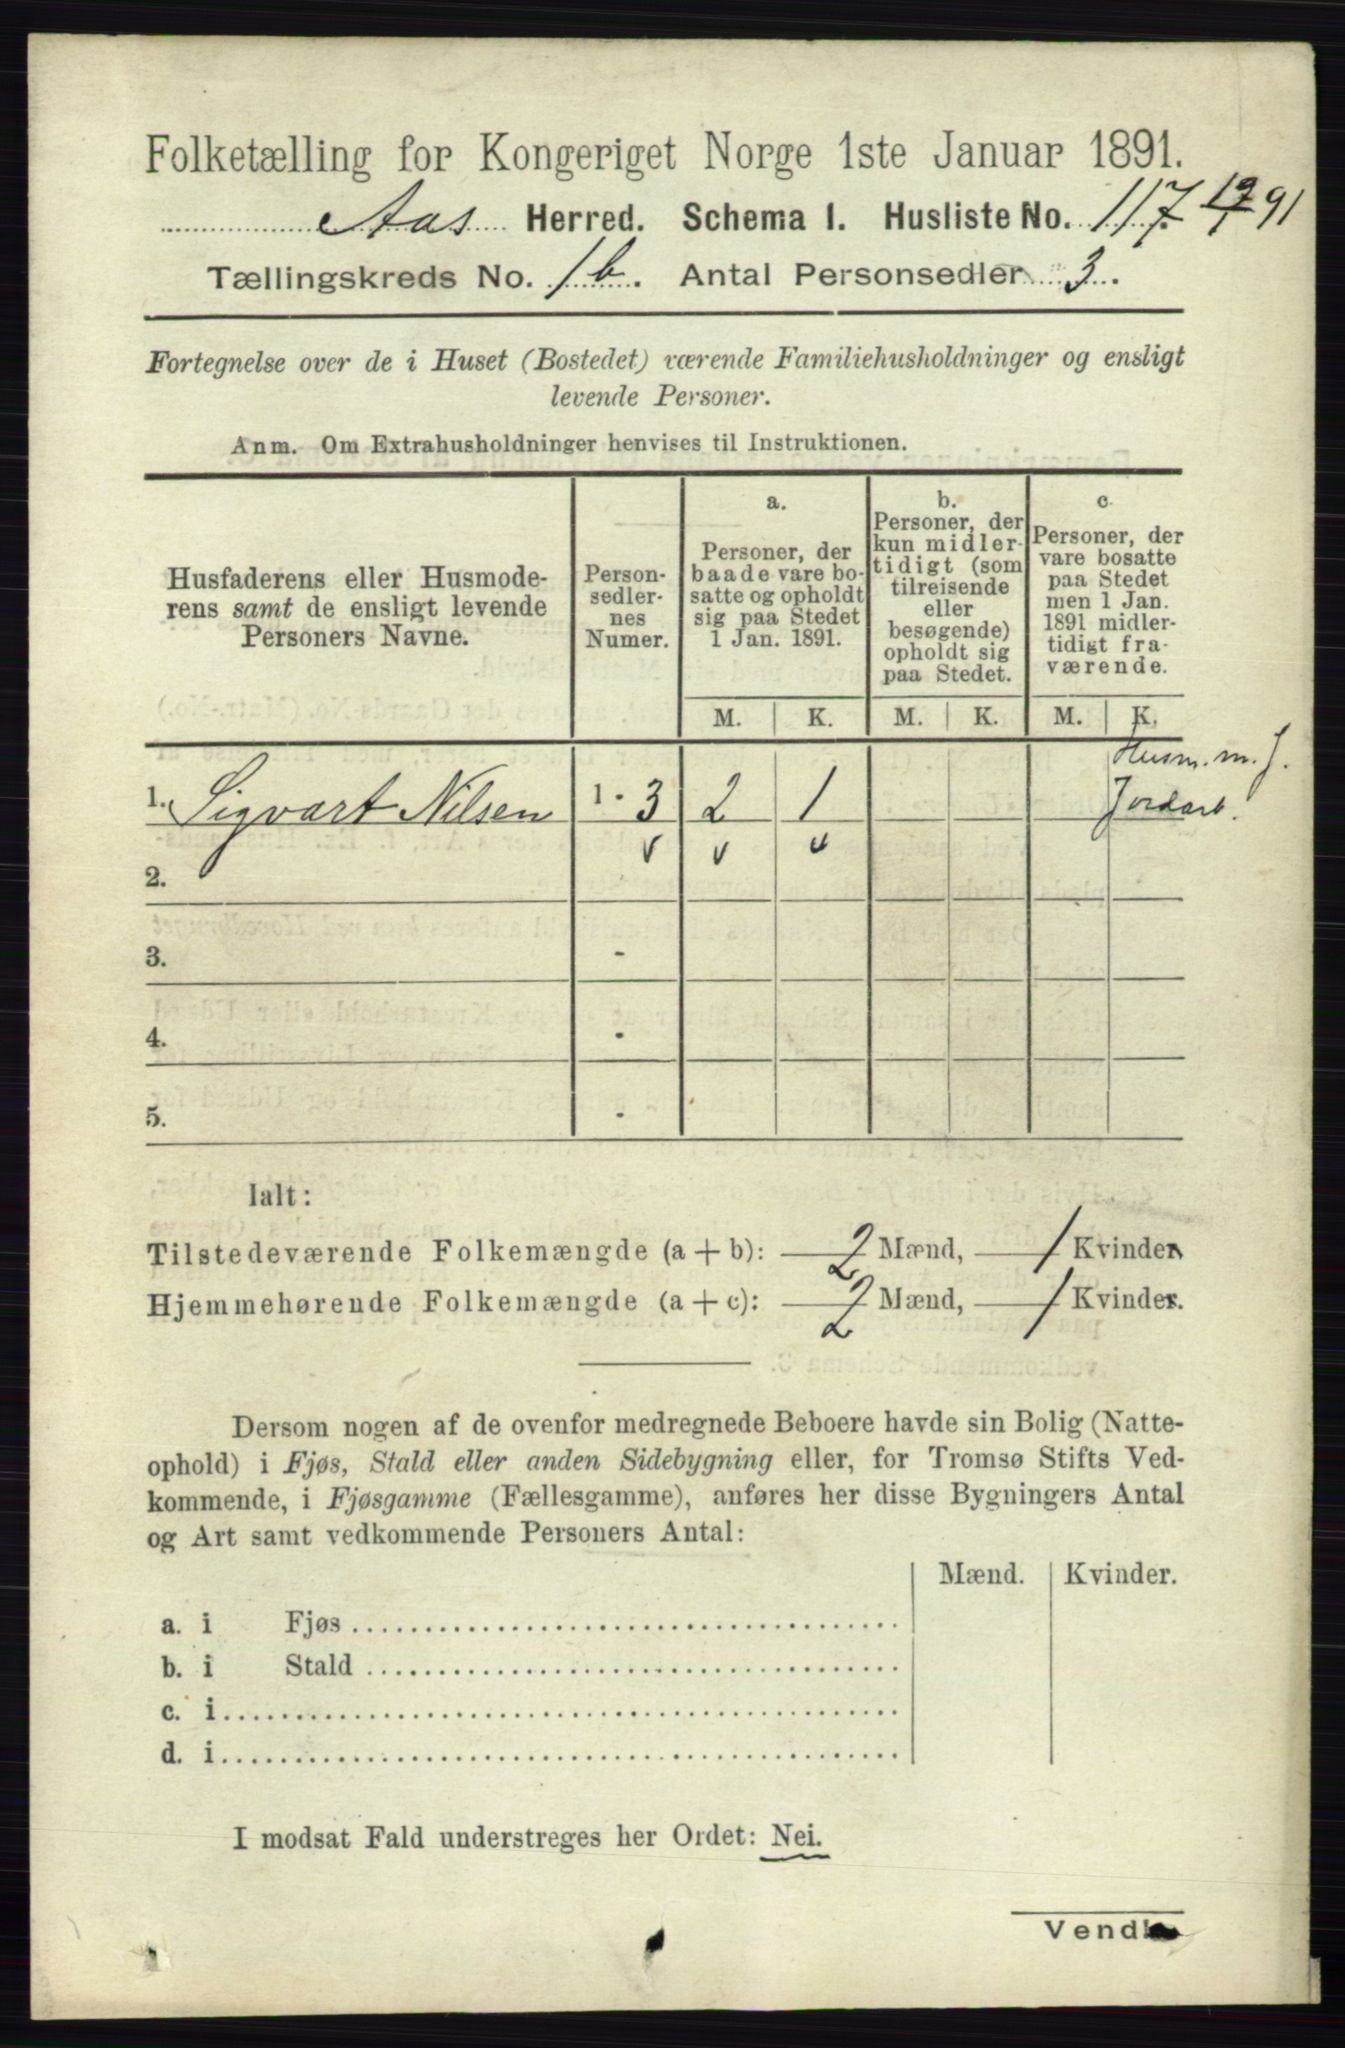 Folketælling for Kongeriget Norge 1ste Januar 1891.
Aas Herred. Schema I. Husliste No. 117. 12/1 91
Tællingskreds No. 1 b. Antal Personsedler 3.
Fortegnelse over de i Huset (Bostedet) værende Familiehusholdninger og ensligt
levende Personer.
Anm. Om Extrahusholdninger henvises til Instruktionen.
Husfaderens eller Husmode-
rens samt de ensligt levende
Personers Navne.
Person-
sedler-
nes
Numer.
a.
Personer, der
baade vare bo-
satte og opholdt
sig paa Stedet
1 Jan. 1891.
b.
Personer, der
kun midler-
tidigt (som
tilreisende
eller
besøgende)
opholdt sig
paa Stedet.
c.
Personer, der
vare bosatte
paa Stedet
men 1 Jan.
1891 midler-
tidigt fra-
værende.
M. K. M. K. M. K.
Husm. m. J.
1. Sigvart Nilsen 1 - 3 2 1 Jordarb.
2.
3. -
4. -
5. -
Ialt:
Tilstedeværende Folkemængde (a + b): 2 Mænd, 1 Kvinder.
Hjemmehørende Folkemængde (a + c): 2 Mænd, 1 Kvinder.
Dersom nogen af de ovenfor medregnede Beboere havde sin Bolig (Natte-
ophold) i Fjøs, Stald eller anden Sidebygning eller, for Tromsø Stifts Ved-
kommende, i Fjøsgamme (Fællesgamme), anføres her disse Bygningers Antal
og Art samt vedkommende Personers Antal:
Mænd. Kvinder.
a. i Fjøs
b. i Stald
c. i
d. i
I modsat Fald understreges her Ordet: Nei.
Vend!